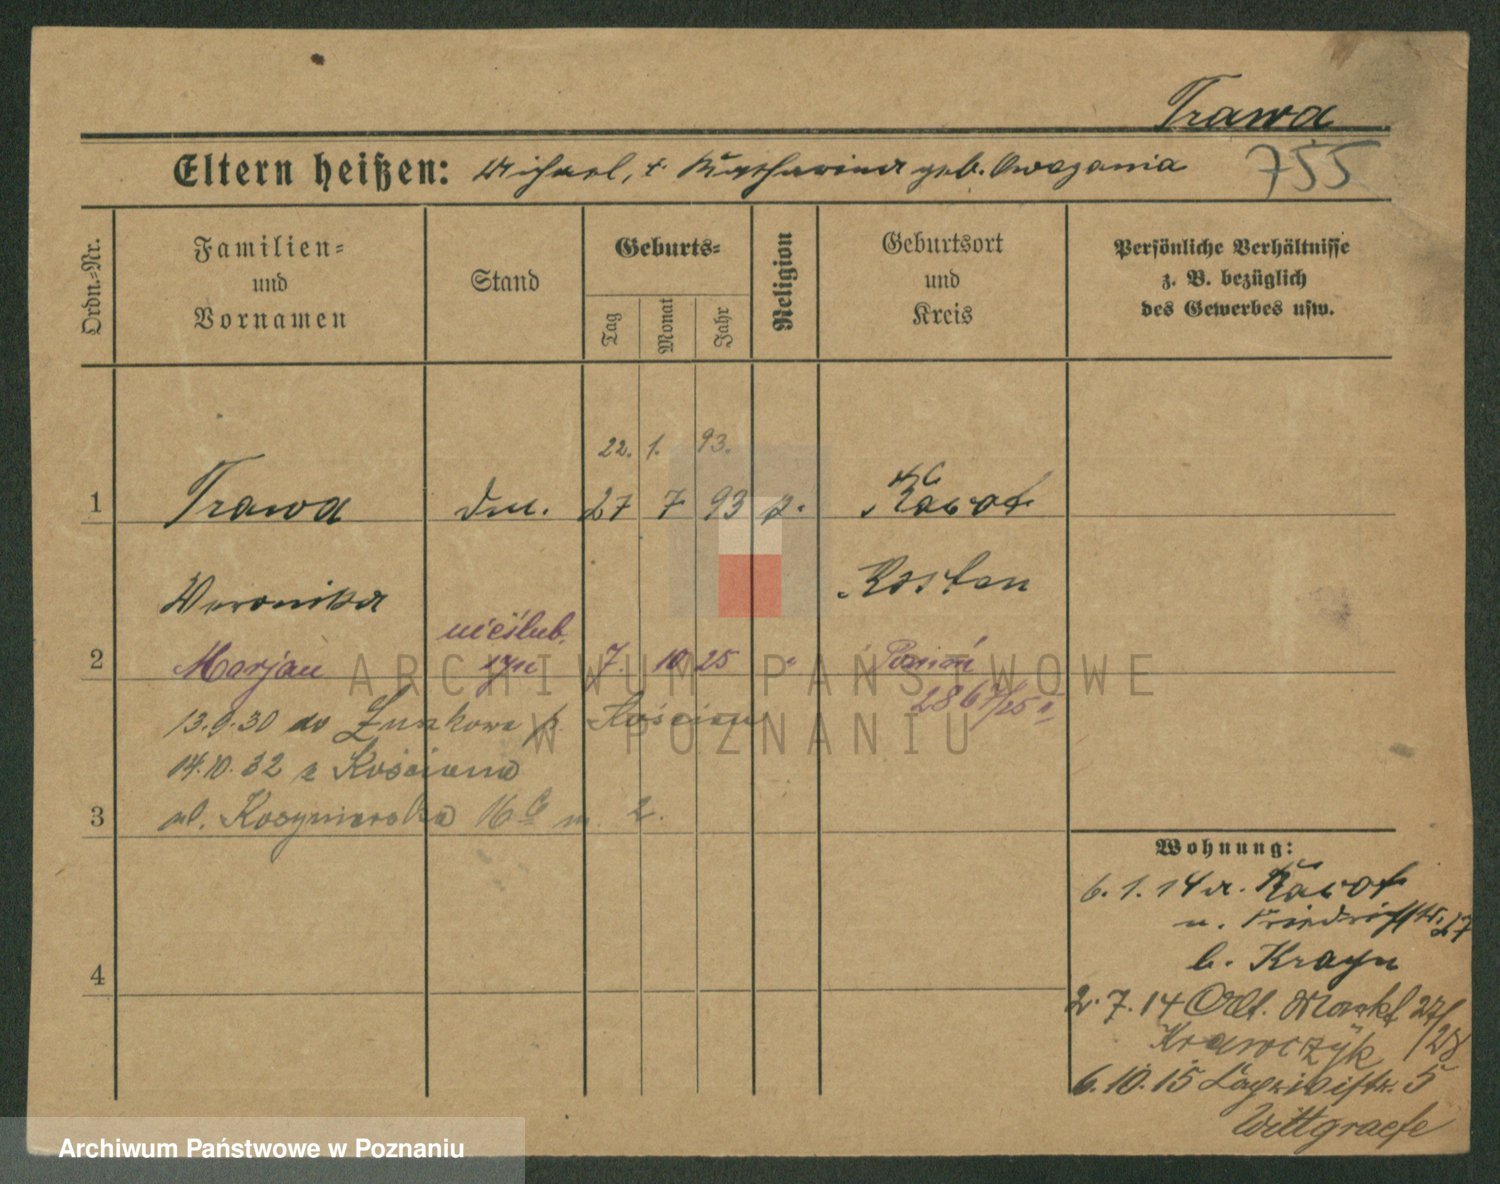 Trawa
Eltern heißen: Michael, + Katharina geb. Owazania
755
Ordn.-Nr.
Familien-
und
Vornamen
Stand
Geburts-
Tag
Monat
Jahr
Religion
Geburtsort
und
Kreis
Persönliche Verhältnisse
z. B. bezüglich
des Gewerbes usw.
22. 1. 93.
1 Trawa 27 7 93
Weronika Kosten
nieślub.
2 Marjan syn 7. 10 25 " Poznań
2867/25
13.9.30 do p. Kościan
14.10.32 z Kościana
3 ul. 16 m. 2.
4
Wohnung:
6. 1. 14 a.
u. Friedrichstr. 27
b. Krayn
2. 7. 14 Alt. Markt 27/28
Krawczyk
6. 10. 15 5
Wittgraefe
ARCHIWUM PAŃSTWOWE
W POZNANIU
Archiwum Państwowe w Poznaniu